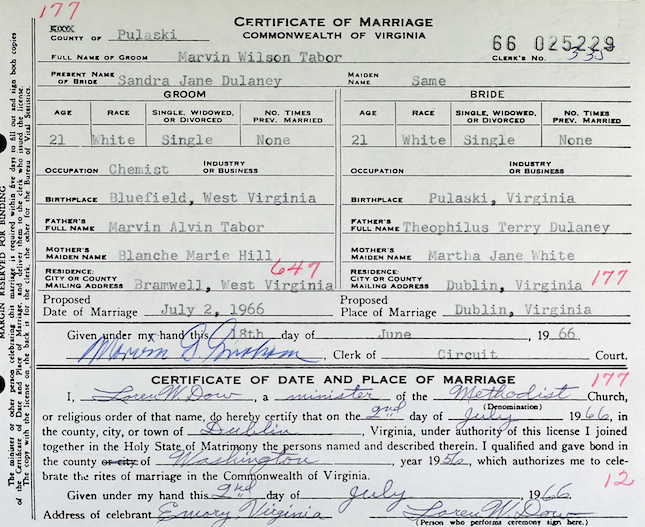 177
CERTIFICATE OF MARRIAGE
COMMONWEALTH OF VIRGINIA
CITY
COUNTY OF Pulaski
66 025229
FULL NAME OF GROOM Marvin Wilson Tabor CLERK'S NO. 335
PRESENT NAME OF BRIDE Sandra Jane Dulaney MAIDEN NAME Same
GROOM BRIDE
AGE RACE SINGLE, WIDOWED, OR DIVORCED NO. TIMES PREV. MARRIED AGE RACE SINGLE, WIDOWED, OR DIVORCED NO. TIMES PREV. MARRIED
21 White Single None 21 White Single None
OCCUPATION Chemist INDUSTRY OR BUSINESS OCCUPATION INDUSTRY OR BUSINESS
BIRTHPLACE Bluefield, West Virginia BIRTHPLACE Pulaski, Virginia
FATHER'S FULL NAME Marvin Alvin Tabor FATHER'S FULL NAME Theophilus Terry Dulaney
MOTHER'S MAIDEN NAME Blanche Marie Hill MOTHER'S MAIDEN NAME Martha Jane White
647
RESIDENCE: CITY OR COUNTY MAILING ADDRESS Bramwell, West Virginia RESIDENCE: CITY OR COUNTY MAILING ADDRESS Dublin, Virginia 177
Proposed Date of Marriage July 2, 1966 Proposed Place of Marriage Dublin, Virginia
Given under my hand this 18th day of June, 1966
Marvin G. Graham, Clerk of Circuit Court.
CERTIFICATE OF DATE AND PLACE OF MARRIAGE 177
I, Loren W. Dow, a minister of the Methodist Church,
(Denomination)
or religious order of that name, do hereby certify that on the 2nd day of July 1966, in
the county, city, or town of Dublin Virginia, under authority of this license I joined
together in the Holy State of Matrimony the persons named and described therein. I qualified and gave bond in
the county or city of Washington, year 1956, which authorizes me to cele-
brate the rites of marriage in the Commonwealth of Virginia. 12
Given under my hand this 2nd day of July, 1966
Address of celebrant Emory Virginia Loren W. Dow
(Person who performs ceremony sign here.)
MARGIN RESERVED FOR BINDING
The minister or other person celebrating this marriage is required within five days to fill out and sign both copies
of the Certificate of Date and Place of Marriage and deliver them to the clerk who issued the license.
The copy with the license on the back is for the clerk, the other for the Bureau of Vital Statistics.